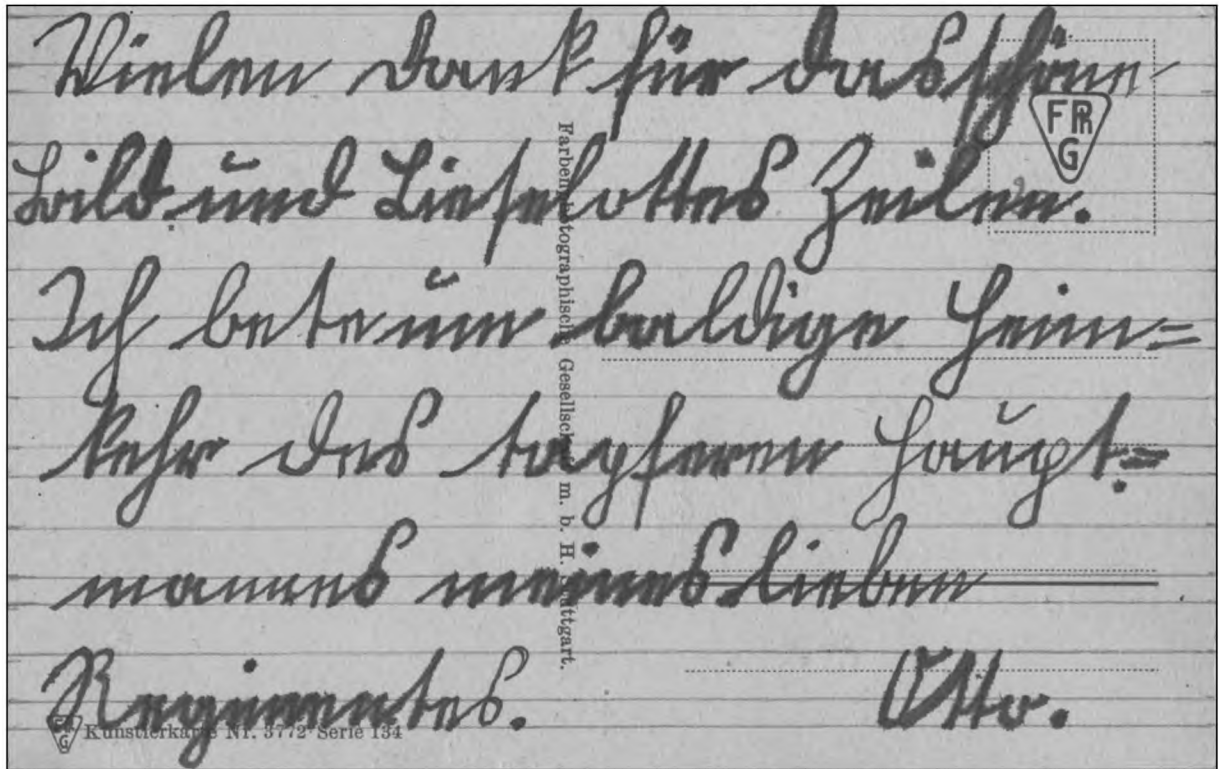 Vielen Dank für das schöne
Bild und Lieselottes Zeilen.
Ich bete um baldige Heim=
kehr des tapferen Haupt=
mannes meines lieben
Regimentes. Otto.
FPhG
Farbenphotographische Gesellschaft m. b. H. Stuttgart.
FPhG Künstlerkarte Nr. 3772 Serie 134